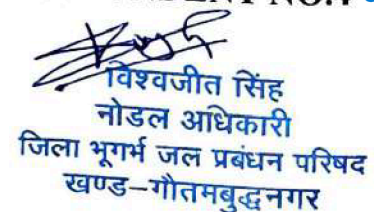 NO.7
विश्वजीत सिंह
नोडल अधिकारी
जिला भूगर्भ जल प्रबंधन परिषद
खण्ड–गौतमबुद्धनगर